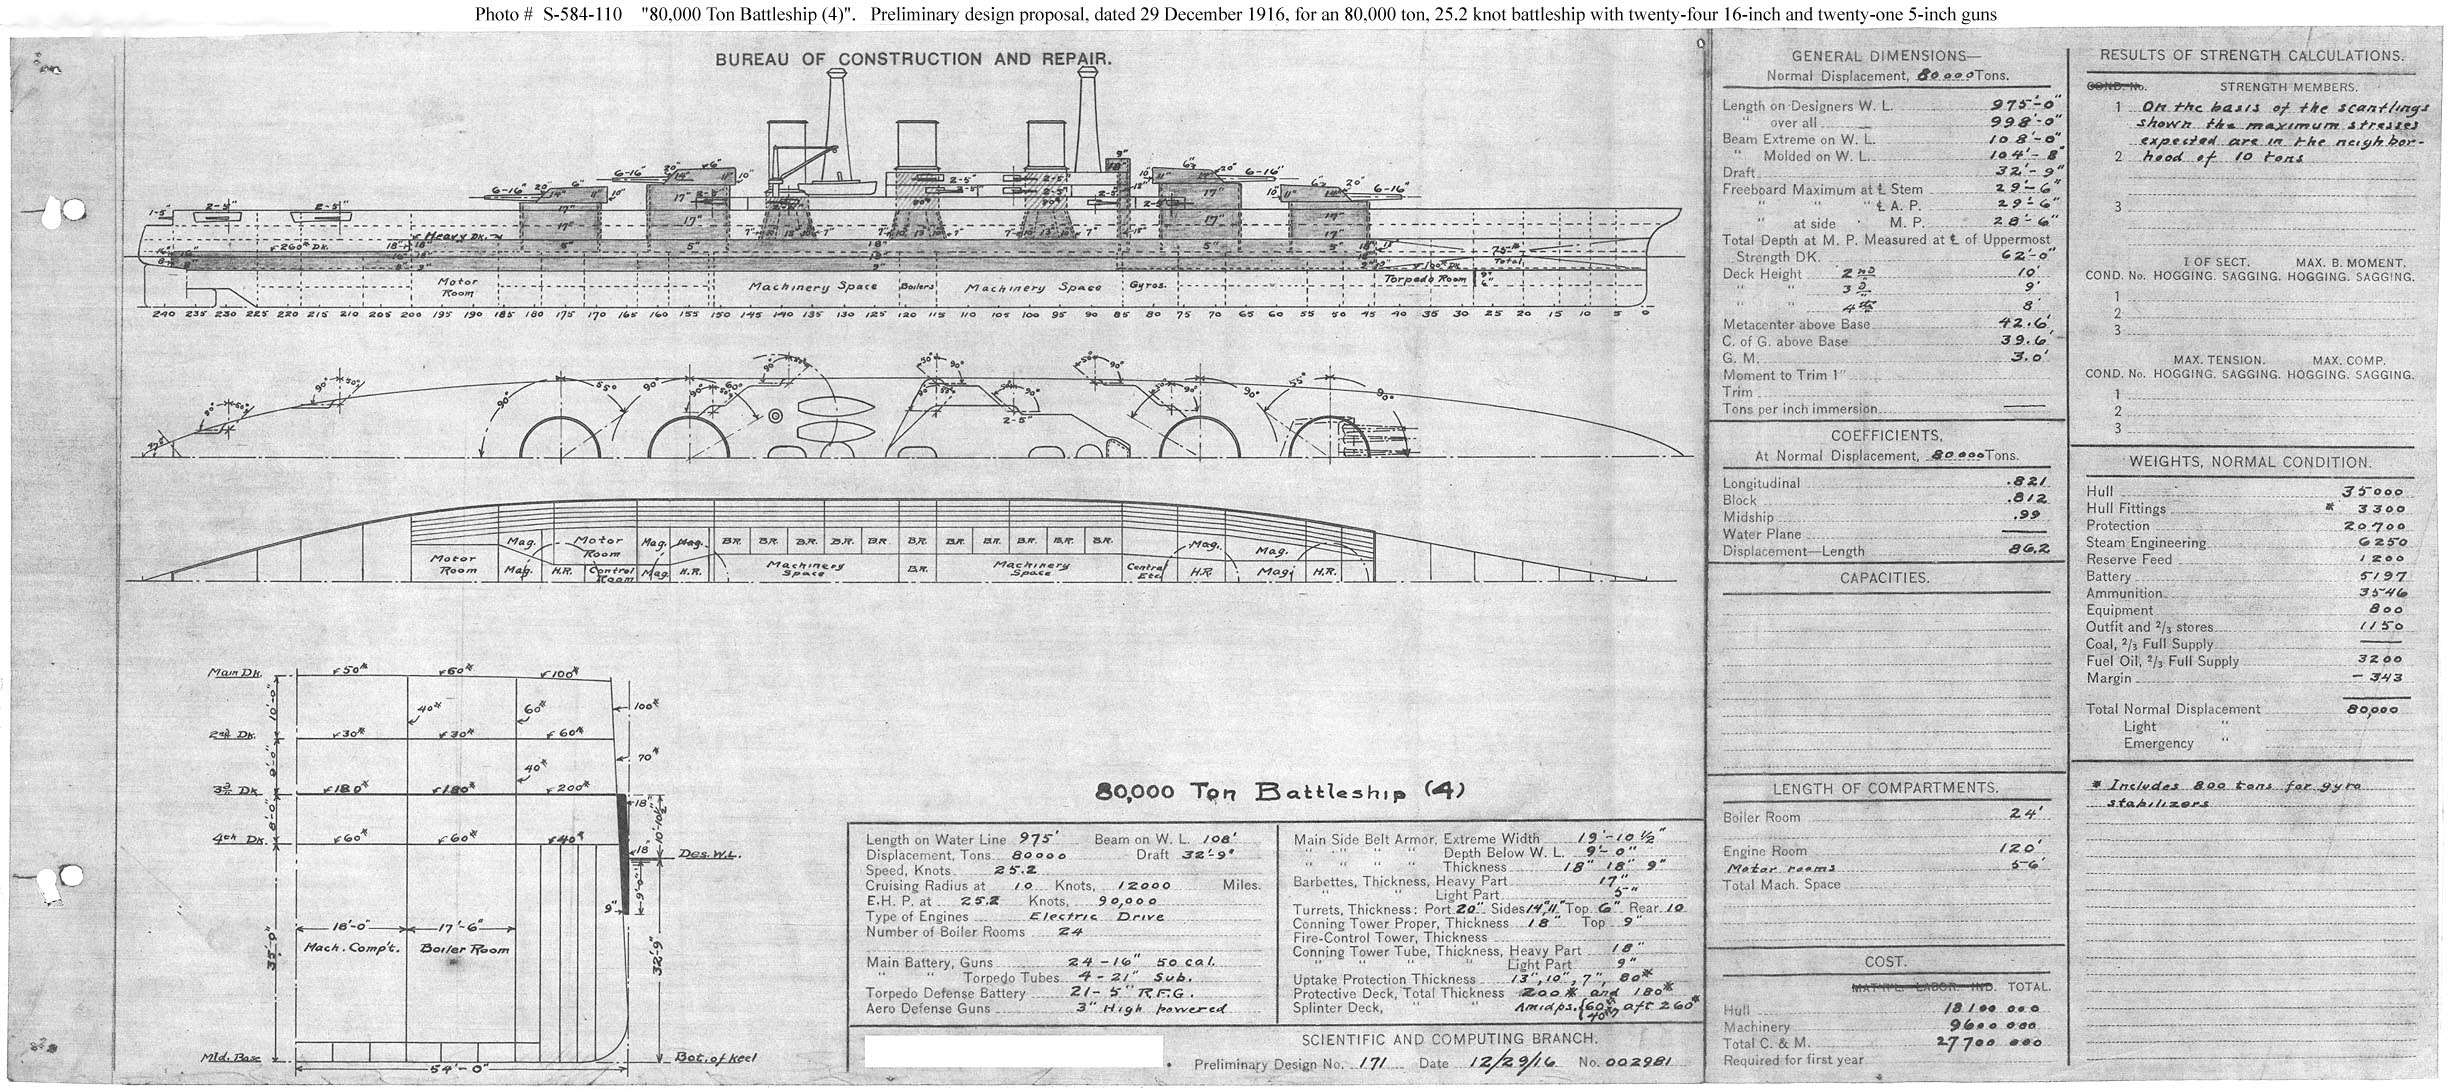 Photo # S-584-110 "80,000 Ton Battleship (4)". Preliminary design proposal, dated 29 December 1916, for an 80,000 ton, 25.2 knot battleship with twenty-four 16-inch and twenty-one 5-inch guns
BUREAU OF CONSTRUCTION AND REPAIR.
6-16" 20" 6"
6-16" 20" 6"
6" 20" 6-16"
6" 20" 6-16"
1-5" 2-5" 2-5"
17" 17" 17" 17"
Heavy Dk.
260# Dk.
Motor Room
Machinery Space
Boilers
Machinery Space
Gyros.
Torpedo Room
240 235 230 225 220 215 210 205 200 195 190 185 180 175 170 165 160 155 150 145 140 135 130 125 120 115 110 105 100 95 90 85 80 75 70 65 60 55 50 45 40 35 30 25 20 15 10 5 0
90° 55° 90° 60° 90° 55° 90°
2-5"
Mag. Motor Room Mag. Mag. B.R. B.R. B.R. B.R. B.R. B.R. B.R. B.R. B.R. B.R. B.R. Mag. Mag.
Motor Room Mag. H.R. Control Room Mag. H.R. Machinery Space B.R. Machinery Space Central Etc. H.R. Mag. H.R.
Main Dk. 50# 60# 100#
10'-0" 40# 60# 100#
2nd Dk. 30# 30# 60#
40# 70#
3rd Dk. 180# 180# 200#
8'-0" 18" 10'-10½"
4th Dk. 60# 60# 40#
18" Des. W.L.
9'-0"
9"
18'-0" 17'-6"
Mach. Comp't. Boiler Room
35'-0" 32'-9"
Mld. Base Bot. of Keel
54'-0"
80,000 Ton Battleship (4)
Length on Water Line 975' Beam on W. L. 108'
Displacement, Tons 80000 Draft 32'-9"
Speed, Knots 25.2
Cruising Radius at 10 Knots, 12000 Miles.
E.H. P. at 25.2 Knots, 90,000
Type of Engines Electric Drive
Number of Boiler Rooms 24
Main Battery, Guns 24-16" 50 cal.
" " Torpedo Tubes 4-21" Sub.
Torpedo Defense Battery 21-5" R.F.G.
Aero Defense Guns 3" High powered
Main Side Belt Armor, Extreme Width 19'-10½"
" " " " Depth Below W. L. 9'-0"
" " " " Thickness 18" 18" 9"
Barbettes, Thickness, Heavy Part 17"
" " Light Part 5"
Turrets, Thickness: Port 20" Sides 14", 11" Top 6" Rear 10
Conning Tower Proper, Thickness 18" Top 9"
Fire-Control Tower, Thickness
Conning Tower Tube, Thickness, Heavy Part 18"
" " " " Light Part 9"
Uptake Protection Thickness 13", 10", 7", 80#
Protective Deck, Total Thickness 200# and 180#
Splinter Deck, " Amidps. {60# 40# aft 260#
SCIENTIFIC AND COMPUTING BRANCH.
Preliminary Design No. 171 Date 12/29/16 No. 002981
GENERAL DIMENSIONS—
Normal Displacement, 80000 Tons.
Length on Designers W. L. 975'-0"
" over all 998'-0"
Beam Extreme on W. L. 108'-0"
" Molded on W. L. 104'-8"
Draft 32'-9"
Freeboard Maximum at ℄ Stem 29'-6"
" " " ℄ A. P. 29'-6"
" at side " M. P. 28'-6"
Total Depth at M. P. Measured at ℄ of Uppermost
Strength DK. 62'-0"
Deck Height 2nd 10'
" " 3d 9'
" " 4th 8'
Metacenter above Base 42.6'
C. of G. above Base 39.6'
G. M. 3.0'
Moment to Trim 1"
Trim
Tons per inch immersion
COEFFICIENTS,
At Normal Displacement, 80000 Tons.
Longitudinal .821
Block .812
Midship .99
Water Plane
Displacement—Length 86.2
CAPACITIES.
LENGTH OF COMPARTMENTS.
Boiler Room 24'
Engine Room 120'
Motor rooms 56'
Total Mach. Space
COST.
MAT'R'L. LABOR. IND. TOTAL.
Hull 18100 000
Machinery 9600 000
Total C. & M. 27700 000
Required for first year
RESULTS OF STRENGTH CALCULATIONS.
COND. No. STRENGTH MEMBERS.
1 On the basis of the scantlings
shown the maximum stresses
expected are in the neighbor-
2 hood of 10 tons
3
I OF SECT. MAX. B. MOMENT.
COND. No. HOGGING. SAGGING. HOGGING. SAGGING.
1
2
3
MAX. TENSION. MAX. COMP.
COND. No. HOGGING. SAGGING. HOGGING. SAGGING.
1
2
3
WEIGHTS, NORMAL CONDITION.
Hull 35000
Hull Fittings * 3300
Protection 20700
Steam Engineering 6250
Reserve Feed 1200
Battery 5197
Ammunition 3546
Equipment 800
Outfit and 2/3 stores 1150
Coal, 2/3 Full Supply
Fuel Oil, 2/3 Full Supply 3200
Margin - 343
Total Normal Displacement 80,000
Light "
Emergency "
* Includes 800 tons for gyro
stabilizers